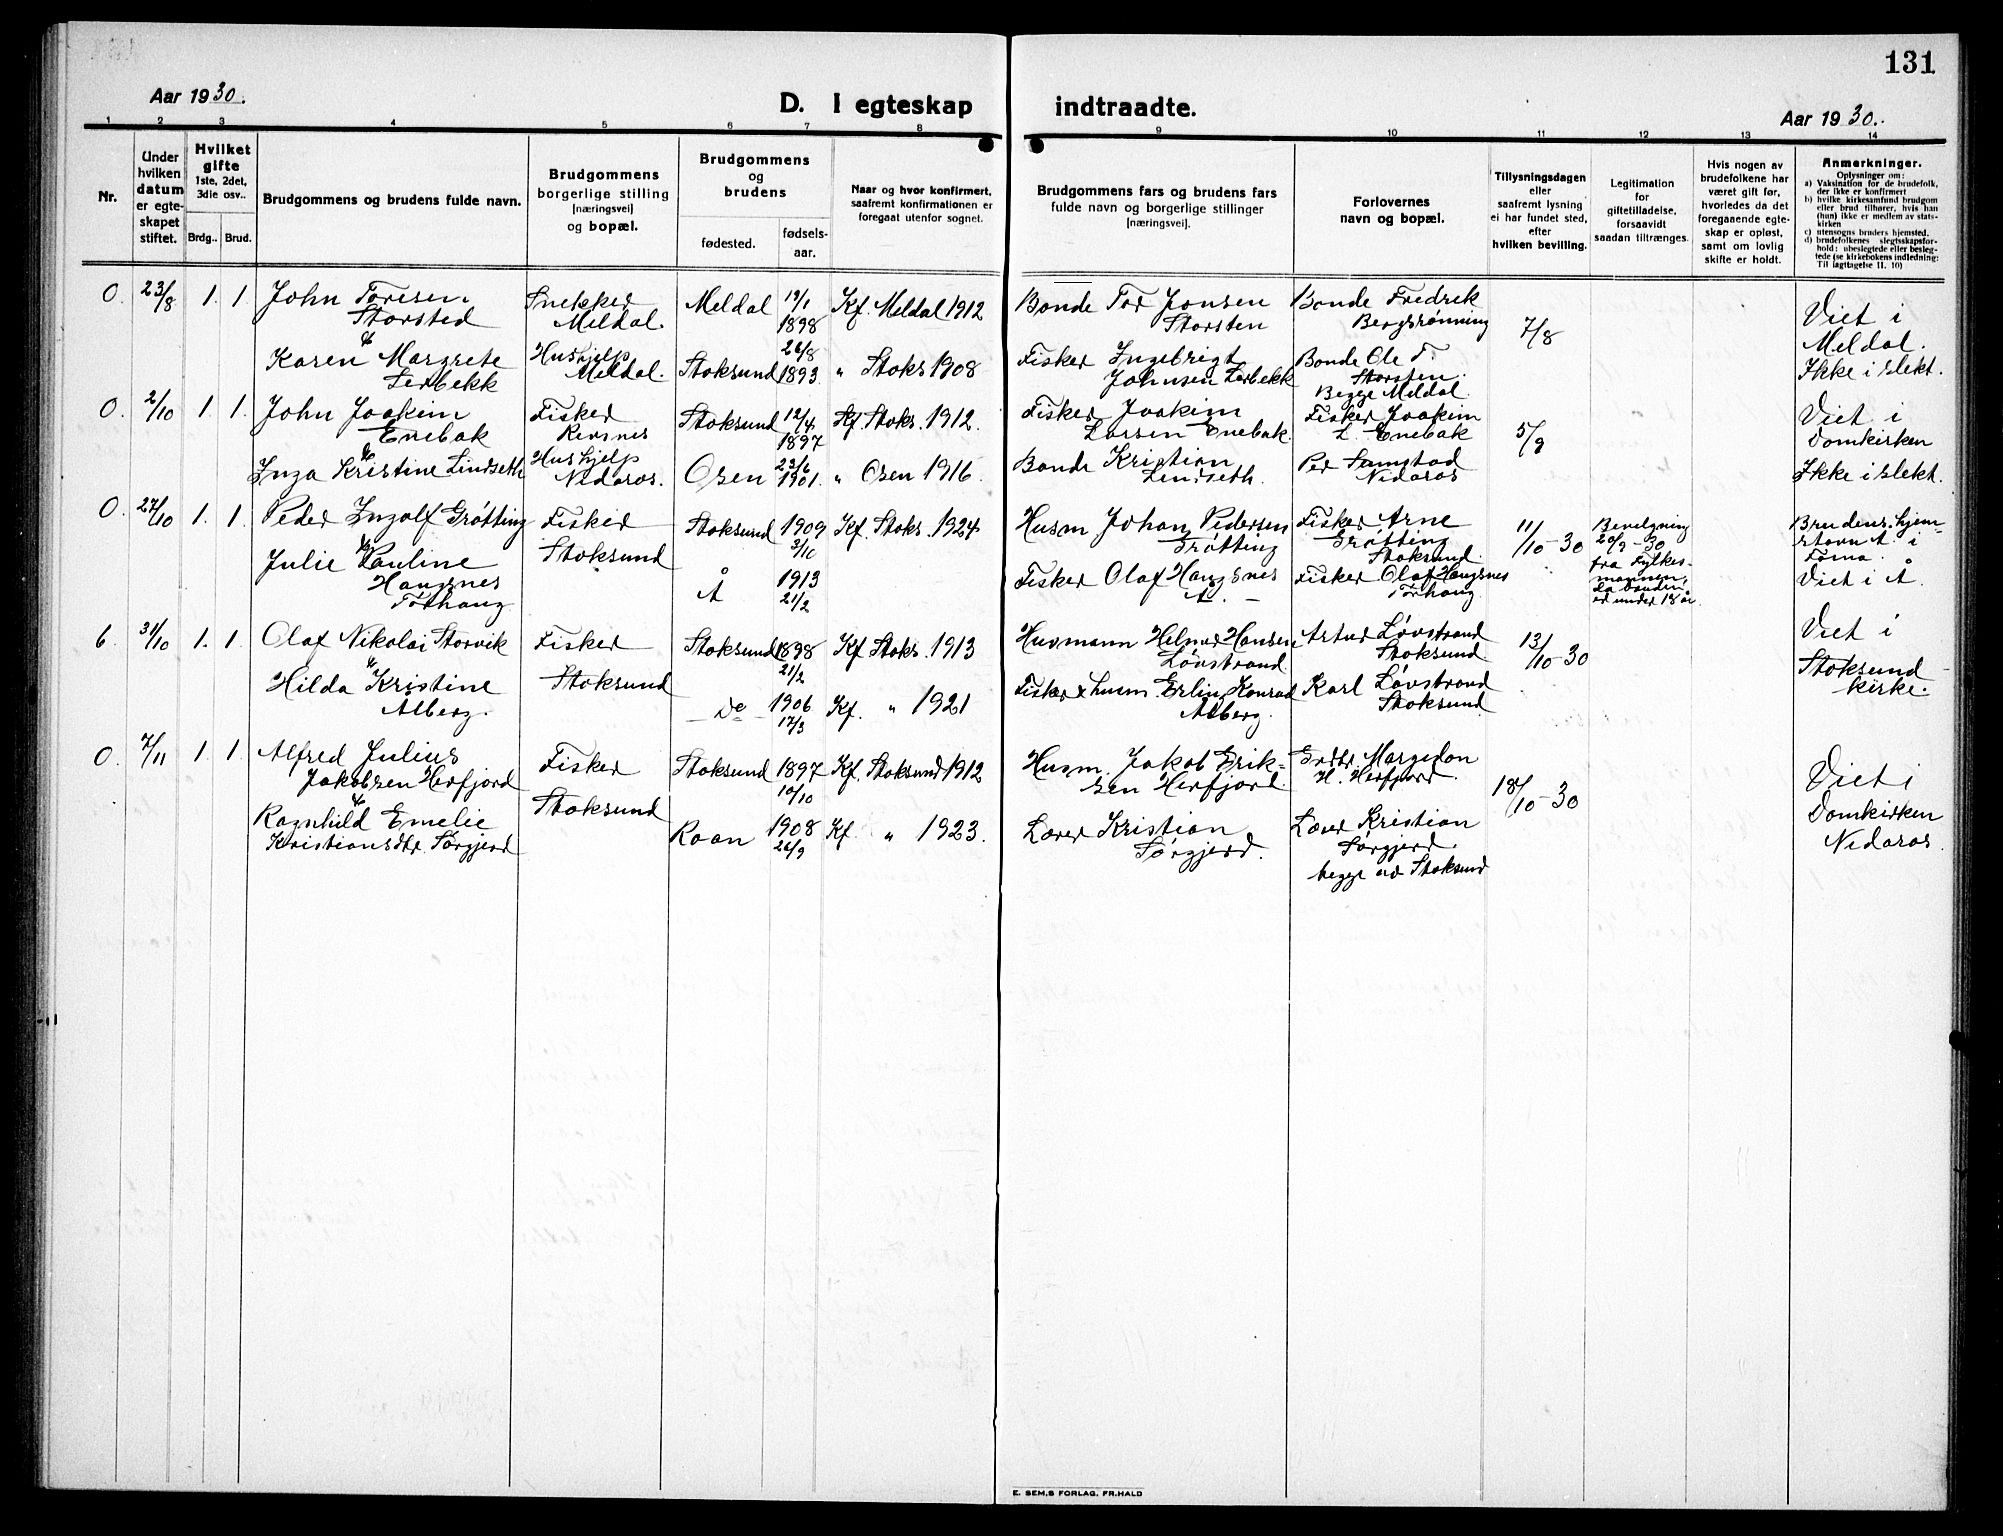 131
Aar 1930.
D. I egteskap indtraadte.
Aar 1930.
1 2 3 4 5 6 7 8 9 10 11 12 13 14
Nr.
Under hvilken datum er egteskapet stiftet.
Hvilket gifte 1ste, 2det, 3die osv..
Brdg.. Brud.
Brudgommens og brudens fulde navn.
Brudgommens borgerlige stilling (næringsvei) og bopæl.
Brudgommens og brudens
fødested.
fødselsaar.
Naar og hvor konfirmert, saafremt konfirmationen er foregaat utenfor sognet.
Brudgommens fars og brudens fars fulde navn og borgerlige stillinger (næringsvei).
Forlovernes navn og bopæl.
Tillysningsdagen eller saafremt lysning ei har fundet sted, efter hvilken bevilling.
Legitimation for giftetilladelse, forsaavidt saadan tiltrænges.
Hvis nogen av brudefolkene har været gift før, hvorledes da det foregaaende egteskap er opløst, samt om lovlig skifte er holdt.
Anmerkninger.
Oplysninger om:
a) Vaksination for de brudefolk, der ikke er konfirmert
b) hvilke kirkesamfund brudgom eller brud tilhører, hvis han (hun) ikke er medlem av statskirken
c) utensogns bruders hjemsted.
d) brudefolkenes slegtsskapsforhold: ubeslegtede eller beslegtede (se kirkebokens indledning: Til iagttagelse II. 10)
0. 23/8 1. 1 John Toresen Storsted
&
Karen Margrete Terbekk
Snekker Meldal.
Hushjelp Meldal.
Meldal 19/1 1898 Kf. Meldal 1912
Stoksund 26/8 1893. " Stoks 1908
Bonde Tor Jonsen Storsten
Fisker Ingebrigt Johnsen Terbekk
Bonde Fredrik Bergsrønning
Bonde Ole T. Storsten.
Begge Meldal
7/8
Viet i Meldal.
Ikke i slekt.
0. 2/10 1. 1. John Joakim Enebak
&
Inga Kristine Lindseth
Fisker Revsnes
Hushjelp Nidaros.
Stoksund 12/4 1897 Kf. Stoks. 1912.
Osen 23/6 1901. " Osen 1916.
Fisker Joakim Larsen Enebak.
Bonde Kristian Lindseth.
Fisker Joakim L. Enebak
Per Sumstad Nidaros
5/9
Viet i Domkirken
Ikke i slekt.
0. 27/10 1. 1. Peder Ingolf Grøtting
&
Julie Pauline Haugsnes Tørhaug
Fisker Stoksund
Stoksund 1909 3/10 Kf. Stoks. 1924
Å 1913 21/2
Husm Johan Pedersen Grøtting
Fisker Olaf Haugsnes Å. —
Fisker Arne Grøtting Stoksund.
Fisker Olaf Haugsnes Tørhaug
11/10-30
Bevilgning 20/9-30 fra Fylkesmannen, da bruden er under 18 år
Brudens hjemstavn Å i
Viet i Å.
6. 31/10 1. 1 Olaf Nikolai Storvik
&
Hilda Kristine Alberg.
Fisker Stoksund
Stoksund 1898 21/2 Kf Stoks. 1913
— De — 1906 17/3 Kf. " 1921
Husmann Helmer Hansen Løvstrand
Fisker & husm Erlin Konrad Alberg.
Artur Løvstrand Stoksund.
Karl Løvstrand Stoksund
13/10-30
Viet i Stoksund kirke.
0. 7/11 1. 1. Alfred Julius Jakobsen Herfjord
&
Ragnhild Emelie Kristiansdtr. Sørgjerd
Fisker Stoksund
Stoksund 1897 10/10 Kf. Stoksund 1912
Roan 1908 26/9 Kf. " 1923.
Husm. Jakob Eriksen Herfjord.
Lærer Kristian Sørgjerd.
Margedon H. Herfjord.
Lærer Kristian Sørgjerd.
begge av Stoksund
18/10-30
Viet i Domkirken Nidaros.
E. SEM,S FORLAG, FR.HALD